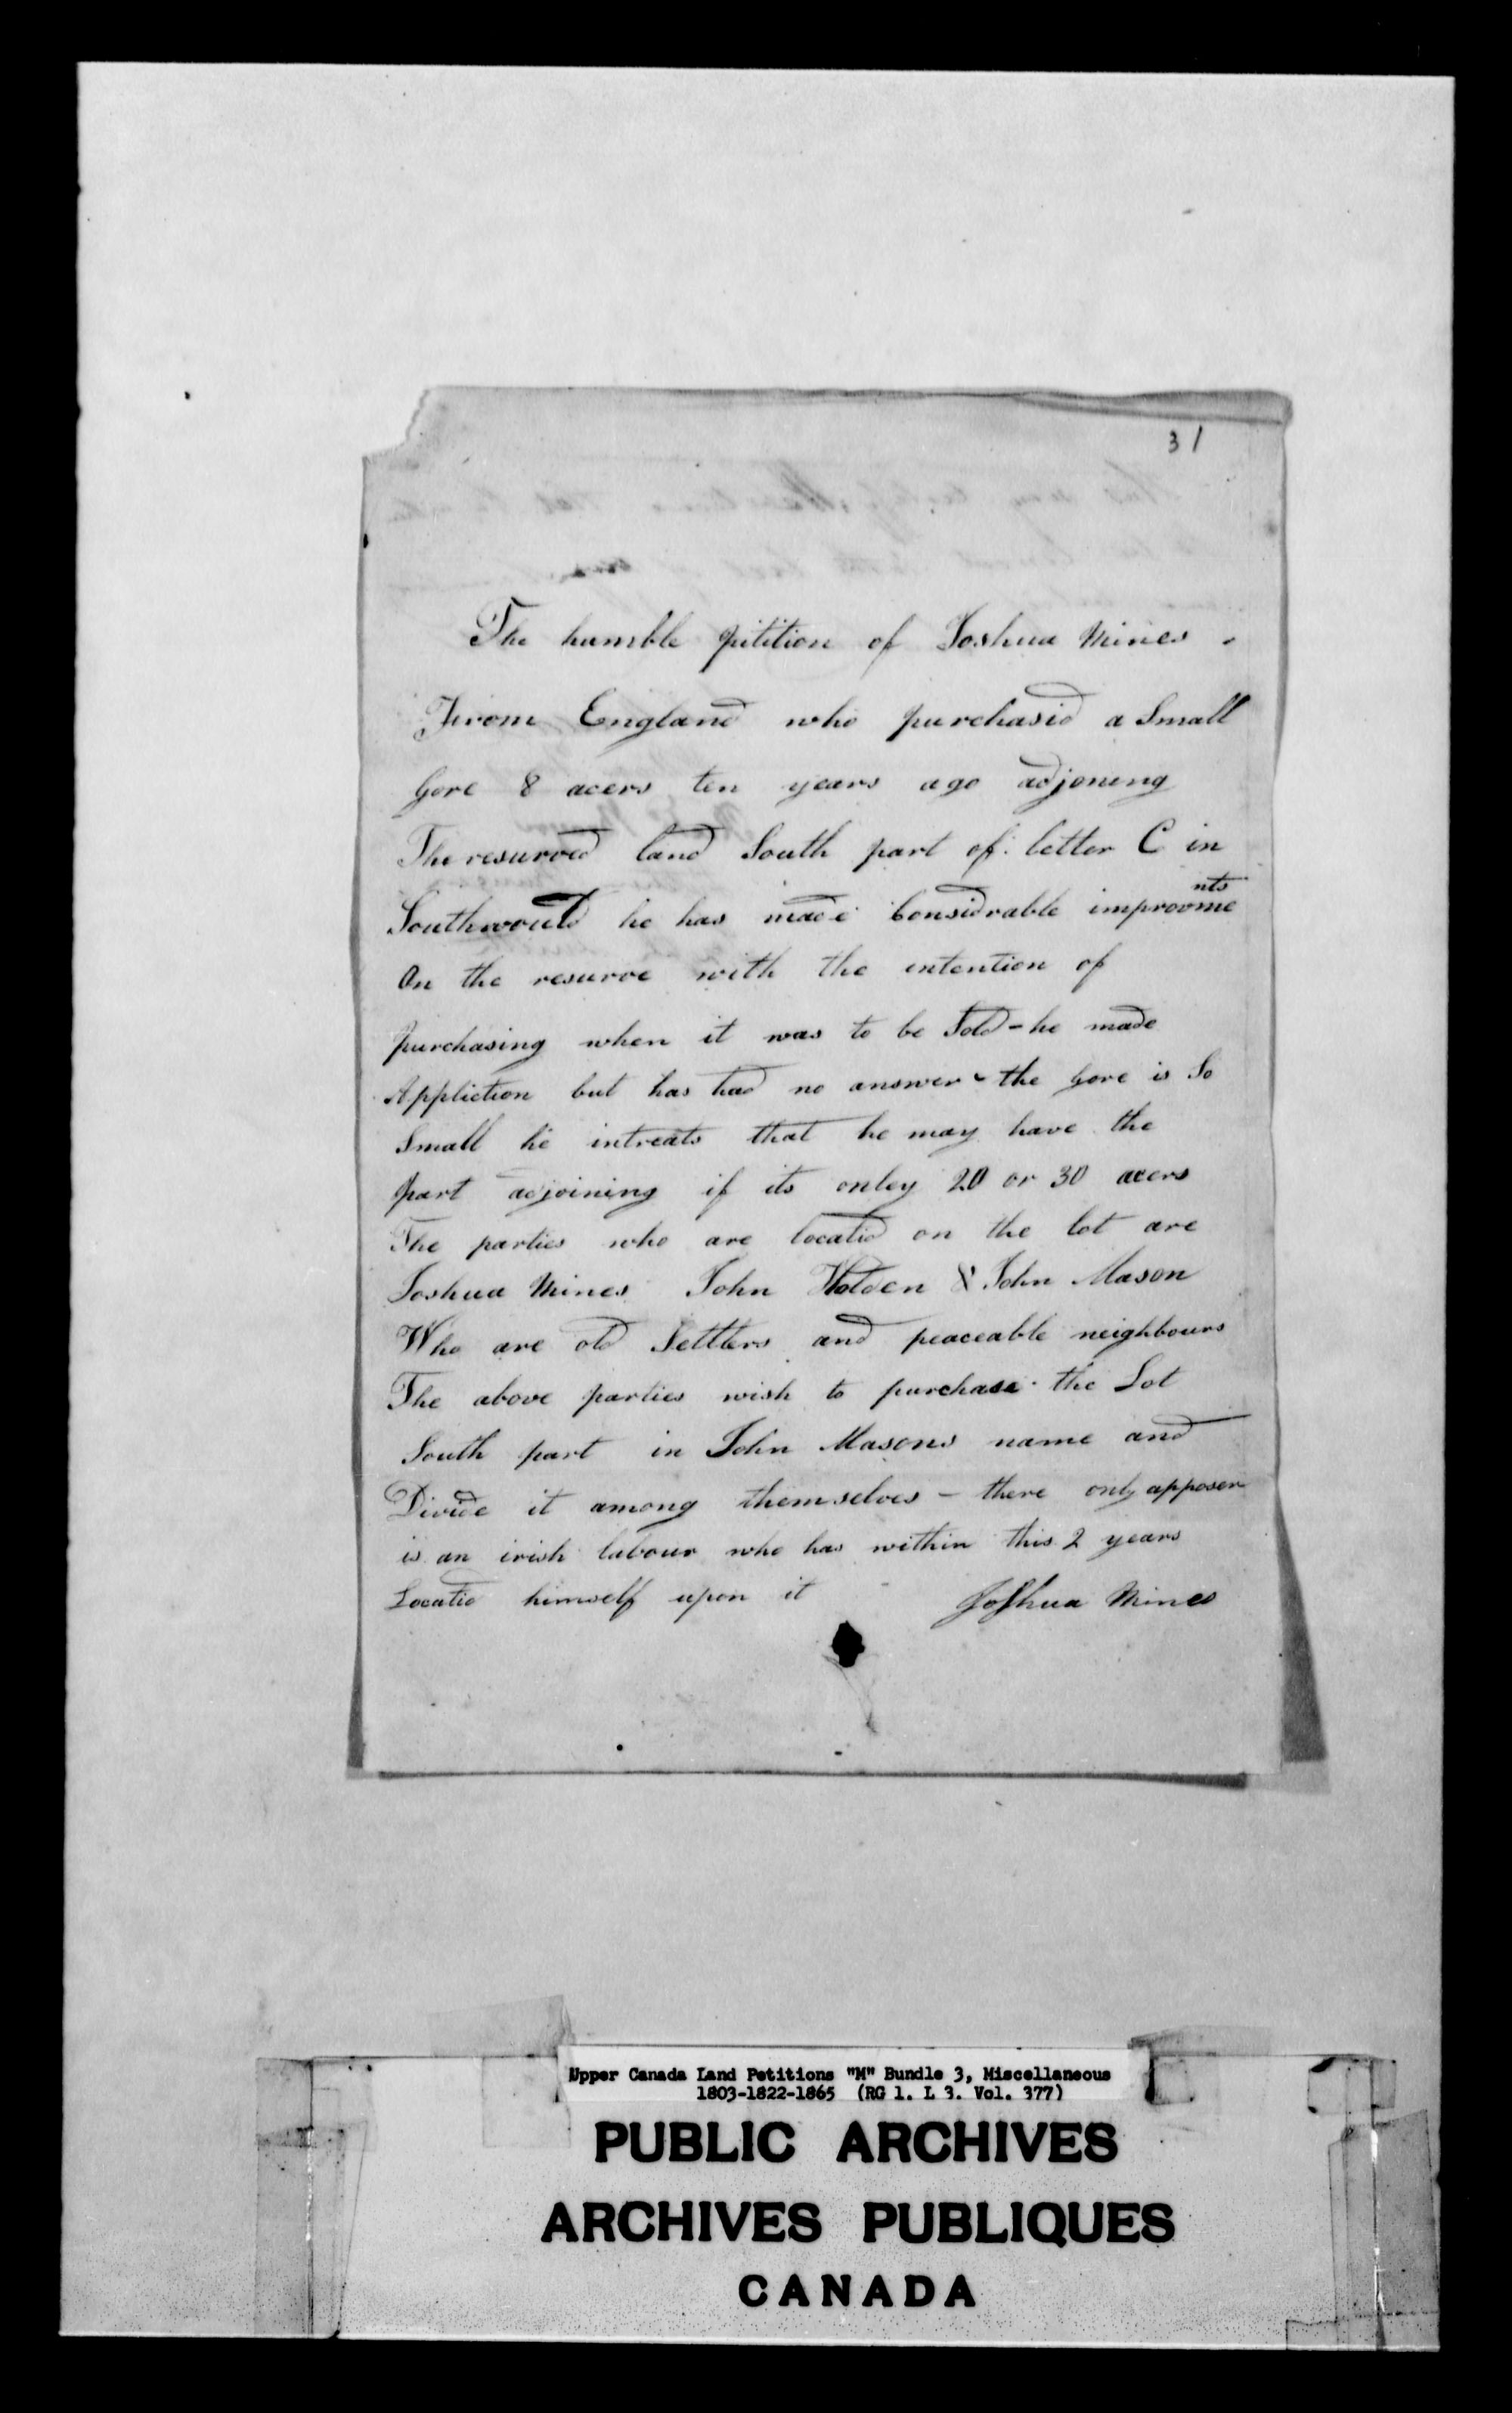 31
The humble pitition of Joshua Mines -
From England who purchasid a Small
Gore 8 acers ten years ago adjoning
The resurved land South part of letter C in
Southwould he has made Considrable improvme nts
On the resurve with the intention of
purchasing when it was to be Sold - he made
Appliction but has had no answer - the Gore is So
Small he intreats that he may have the
part adjoining if its onley 20 or 30 acers
The parties who are locatid on the lot are
Joshua Mines John Holden & John Mason
Who are old Settlers and peaceable neighbours
The above parties wish to purchase the Lot
South part in John Masons name and
Divide it among themselves - there only apposer
is an irish labour who has within this 2 years
Locatid himself upon it - Joshua Mines
Upper Canada Land Petitions "M" Bundle 3, Miscellaneous
1803-1822-1865 (RG 1. L 3. Vol. 377)
PUBLIC ARCHIVES
ARCHIVES PUBLIQUES
CANADA